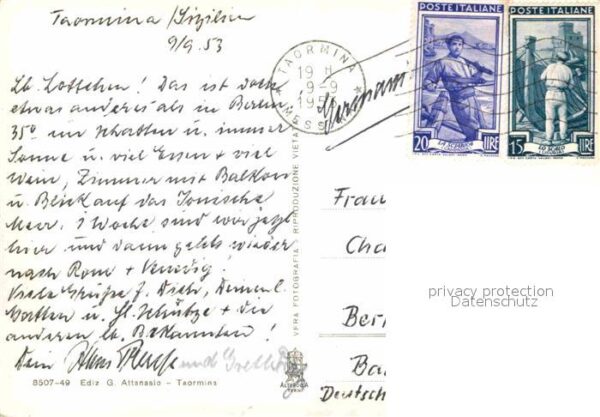 Taormina / Sizilien
9/9. 53
Lb. Lottchen! Das ist doch
etwas anderes als in Berlin
35° im Schatten u. immer
Sonne u. viel Essen + viel
Wein, Zimmer mit Balkon
u. Blick auf das Ionische
Meer. 1 Woche sind wir jetzt
hier und dann geht's wieder
nach Rom + Venedig.
Viele Grüsse f. Dich, Deinen lb.
Gatten u. Fl. Schültze + die
anderen lb. Bekannten!
Dein Hans und
8507-49 Ediz G. Attanasio - Taormina
VERA FOTOGRAFIA - RIPRODUZIONE VIETATA
TAORMINA
19 H
9-9
195
MESSINA
Germania
POSTE ITALIANE
20 LIRE
POSTE ITALIANE
15 LIRE
Frau
Cha
Ber
Ba
Deutsch
privacy protection
Datenschutz